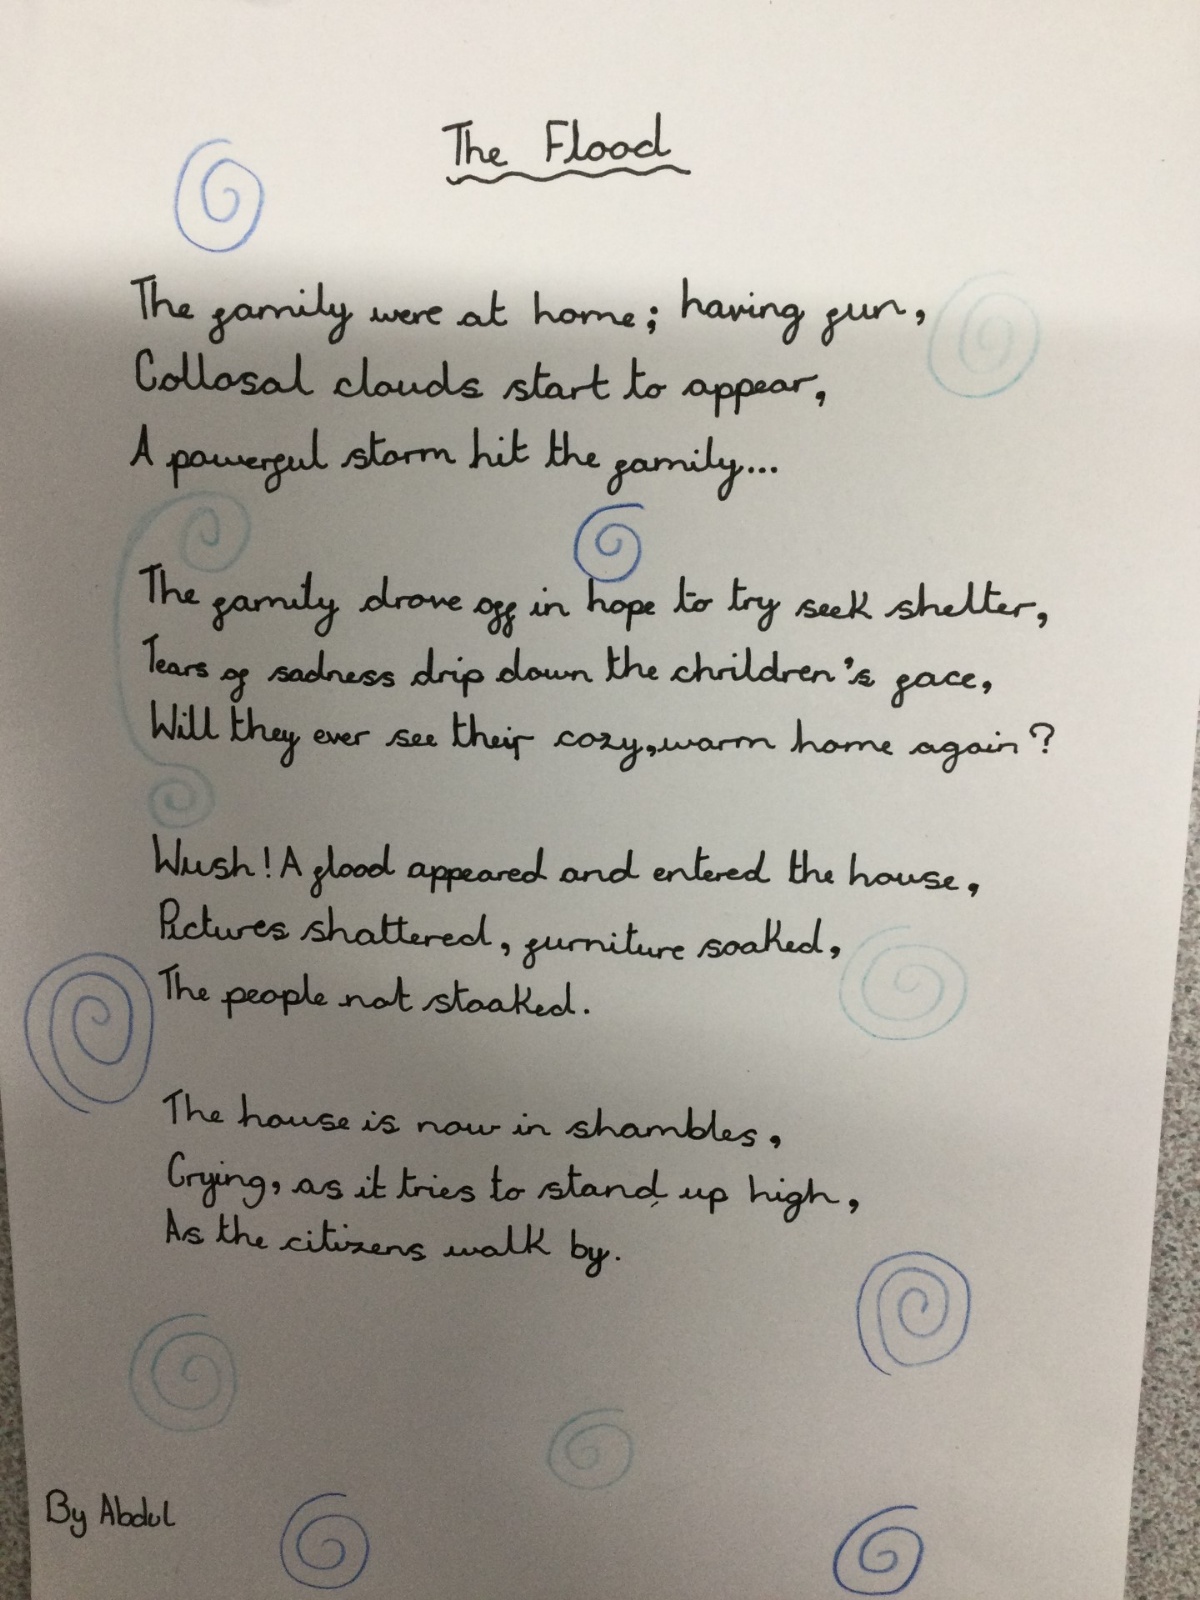 The Flood
The family were at home; having fun,
Collosal clouds start to appear,
A powerful storm hit the family...
The family drove off in hope to try seek shelter,
Tears of sadness drip down the chrildren's face,
Will they ever see their cozy, warm home again?
Wush! A flood appeared and entered the house,
Pictures shattered, furniture soaked,
The people not stoaked.
The house is now in shambles,
Crying, as it tries to stand up high,
As the citizens walk by.
By Abdul